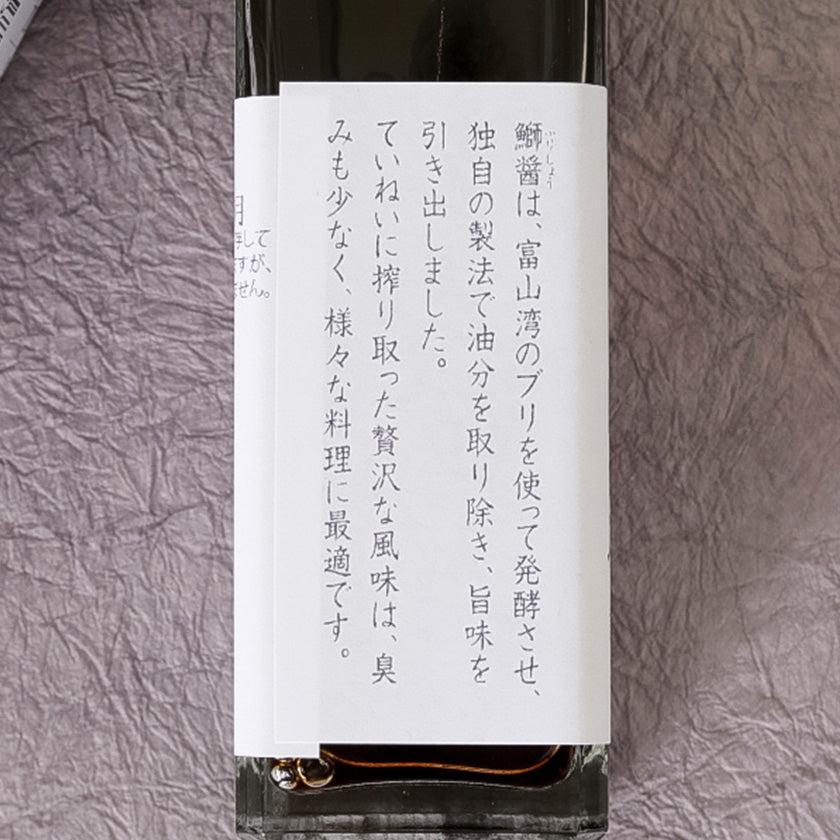 鰤醤は、富山湾のブリを使って発酵させ、
ぶりしょう
独自の製法で油分を取り除き、旨味を
引き出しました。
ていねいに搾り取った贅沢な風味は、臭
みも少なく、様々な料理に最適です。
して
すが、
せん。